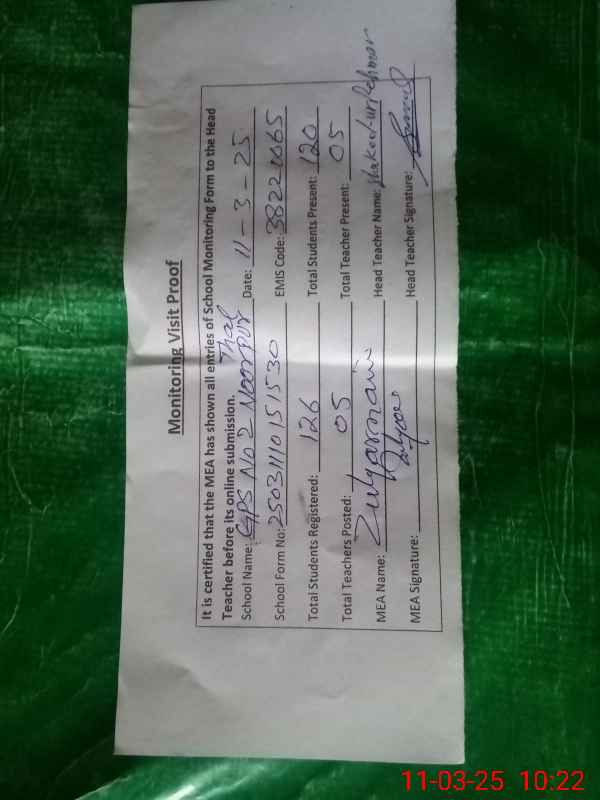 Monitoring Visit Proof
It is certified that the MEA has shown all entries of School Monitoring Form to the Head
Teacher before its online submission.
School Name: GPS No 2 Noorpur Thal Date: 11-3-25
School Form No: 25031110151530 EMIS Code: 38221065
Total Students Registered: 126 Total Students Present: 120
Total Teachers Posted: 05 Total Teacher Present: 05
MEA Name: Zulqarnain Head Teacher Name: Shakeel-ur-Rehman
MEA Signature: Head Teacher Signature:
11-03-25 10:22